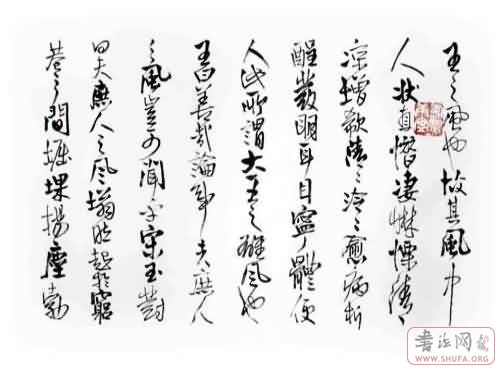 王之風也故其風中
人狀直憯凄惏慄清
涼增欷清〻泠〻愈病析
酲發明耳目寧體便
人此所謂大王之雄風也
王曰善哉論事夫庶人
之風豈可聞乎宋玉對
曰夫庶人之風塕然起於窮
巷之間堀堁揚塵勃
書法网
WWW.SHUFA.ORG